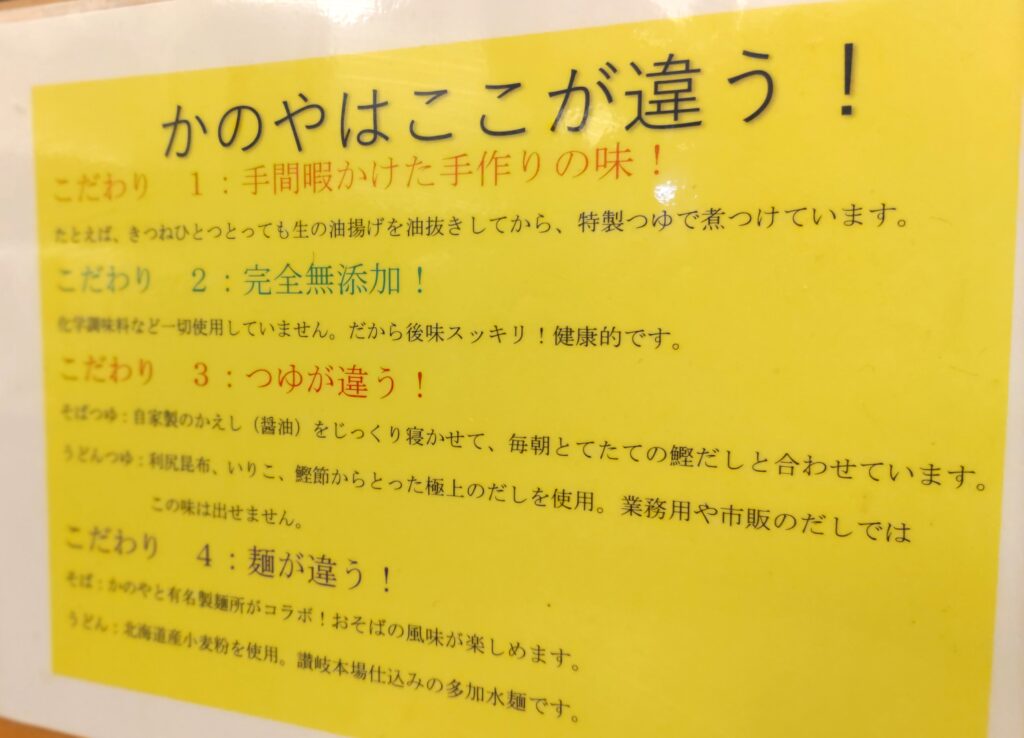 かのやはここが違う！
こだわり　１：手間暇かけた手作りの味！
たとえば、きつねひとつとっても生の油揚げを油抜きしてから、特製つゆで煮つけています。
こだわり　２：完全無添加！
化学調味料など一切使用していません。だから後味スッキリ！健康的です。
こだわり　３：つゆが違う！
そばつゆ：自家製のかえし（醤油）をじっくり寝かせて、毎朝とてたての鰹だしと合わせています。
うどんつゆ：利尻昆布、いりこ、鰹節からとった極上のだしを使用。業務用や市販のだしでは
この味は出せません。
こだわり　４：麺が違う！
そば：かのやと有名製麺所がコラボ！おそばの風味が楽しめます。
うどん：北海道産小麦粉を使用。讃岐本場仕込みの多加水麺です。